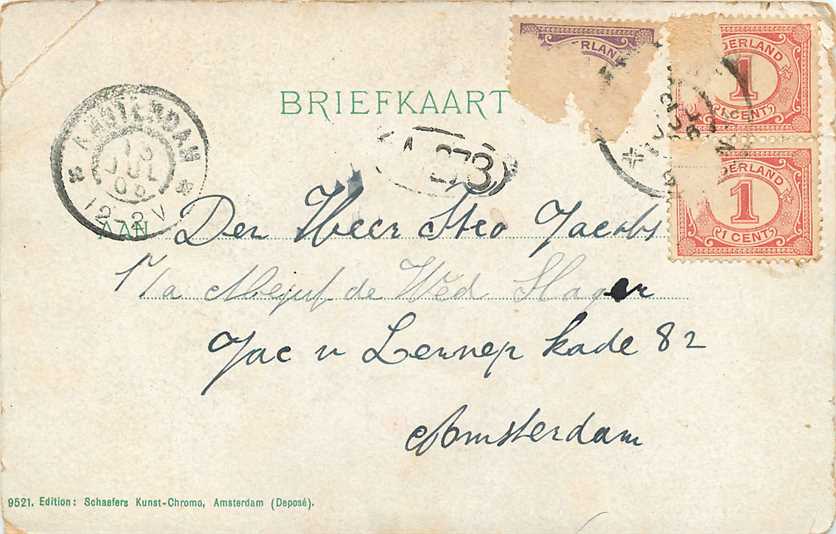 BRIEFKAART
NEDERLAND
1
1 CENT
NEDERLAND
1
1 CENT
AMSTERDAM
JUL
12-2V
AAN Den Heer Theo Jacobs
P/a Mejuf de Wed Slager
Jac v Lennep kade 82
Amsterdam
9521. Edition: Schaefers Kunst-Chromo, Amsterdam (Deposé).